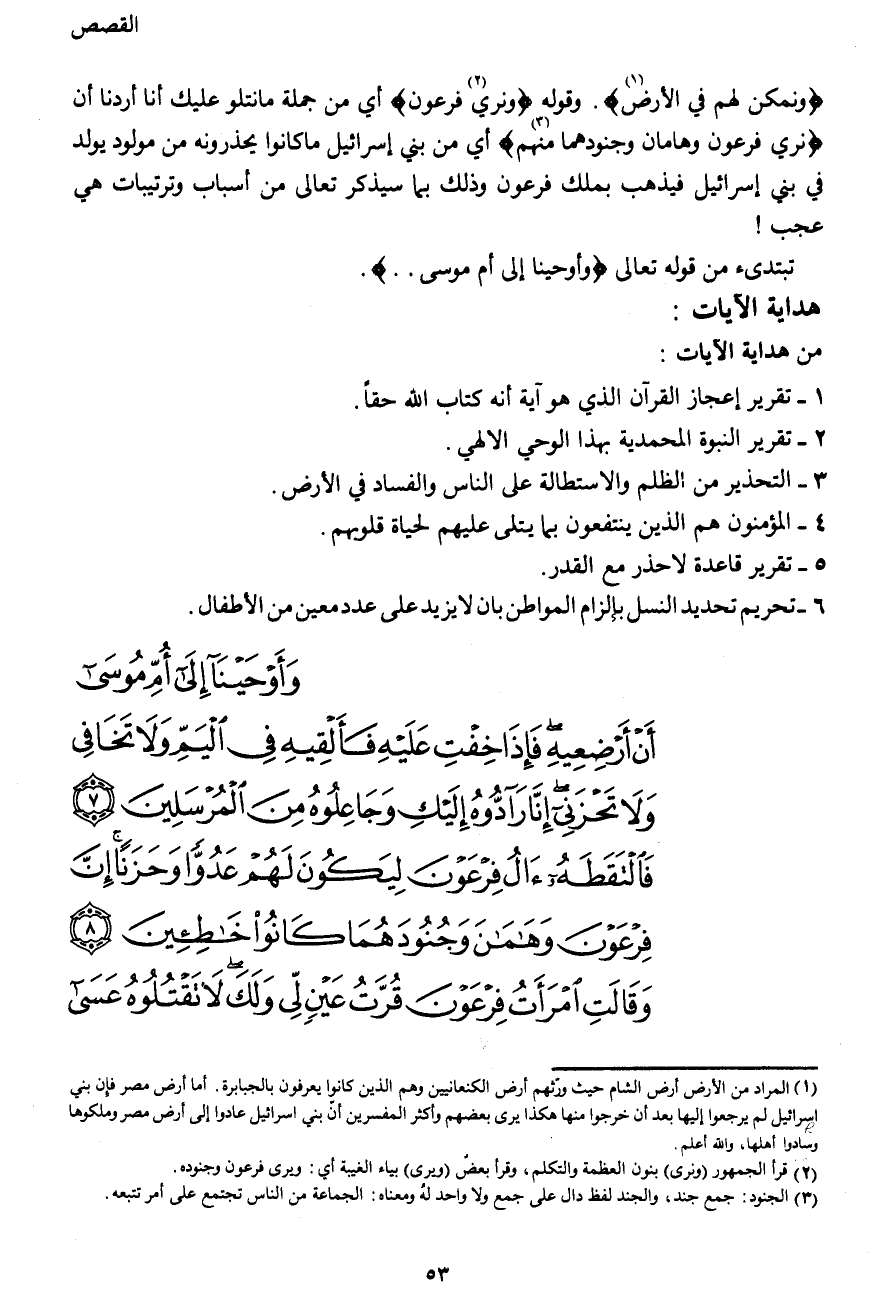 القصص
﴿ونمكن لهم في الأرض(١)﴾. وقوله ﴿ونري(٢) فرعون﴾ أي من جملة مانتلو عليك أنا أردنا أن
﴿نري فرعون وهامان وجنودهما(٣) منهم﴾ أي من بني إسرائيل ماكانوا يحذرونه من مولود يولد
في بني إسرائيل فيذهب بملك فرعون وذلك بما سيذكر تعالى من أسباب وترتيبات هي
عجب !
تبتدىء من قوله تعالى ﴿وأوحينا إلى أم موسى . . ﴾ .
هداية الآيات :
من هداية الآيات :
١ ـ تقرير إعجاز القرآن الذي هو آية أنه كتاب الله حقاً.
٢ ـ تقرير النبوة المحمدية بهذا الوحي الالهي .
٣ ـ التحذير من الظلم والاستطالة على الناس والفساد في الأرض .
٤ ـ المؤمنون هم الذين ينتفعون بما يتلى عليهم لحياة قلوبهم .
٥ ـ تقرير قاعدة لاحذر مع القدر.
٦ ـ تحريم تحديد النسل بإلزام المواطن بان لايزيد على عدد معين من الأطفال .
وَأَوْحَيْنَآ إِلَىٰٓ أُمِّ مُوسَىٰٓ
أَنْ أَرْضِعِيهِ ۖ فَإِذَا خِفْتِ عَلَيْهِ فَأَلْقِيهِ فِى ٱلْيَمِّ وَلَا تَخَافِى
وَلَا تَحْزَنِىٓ ۖ إِنَّا رَآدُّوهُ إِلَيْكِ وَجَاعِلُوهُ مِنَ ٱلْمُرْسَلِينَ ٧
فَٱلْتَقَطَهُۥٓ ءَالُ فِرْعَوْنَ لِيَكُونَ لَهُمْ عَدُوًّا وَحَزَنًا ۗ إِنَّ
فِرْعَوْنَ وَهَـٰمَـٰنَ وَجُنُودَهُمَا كَانُوا۟ خَـٰطِـِٔينَ ٨
وَقَالَتِ ٱمْرَأَتُ فِرْعَوْنَ قُرَّتُ عَيْنٍ لِّى وَلَكَ ۖ لَا تَقْتُلُوهُ عَسَىٰٓ
(١) المراد من الأرض أرض الشام حيث ورّثهم أرض الكنعانيين وهم الذين كانوا يعرفون بالجبابرة . أما أرض مصر فإن بني
إسرائيل لم يرجعوا إليها بعد أن خرجوا منها هكذا يرى بعضهم وأكثر المفسرين أنّ بني اسرائيل عادوا إلى أرض مصر وملكوها
وسادوا أهلها، والله أعلم .
(٢) قرأ الجمهور (ونرى) بنون العظمة والتكلم ، وقرأ بعضٌ (ويرى) بياء الغيبة أي : ويرى فرعون وجنوده.
(٣) الجنود: جمع جند، والجند لفظ دال على جمع ولا واحد لهُ ومعناه : الجماعة من الناس تجتمع على أمر تتبعه .
٥٣